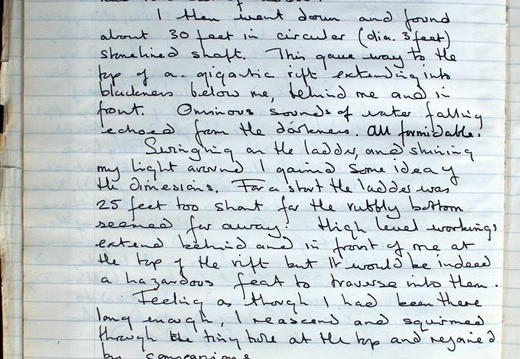 I then went down and found
about 30 feet in circular (dia. 3 feet)
stonelined shaft. This gave way to the
top of a gigastic rift extending into
blackness below me, behind me and in
front. Ominous sounds of water falling
echoed from the darkness. All formidable!
Swinging on the ladder, and shining
my light around I gained some idea of
the dimesians. For a start the ladder was
25 feet too short for the rubbly bottom
seemed far away. High level workings
extend behind and in front of me at
the top of the rift but it would be indeed
a hazardous feat to traverse into them.
Feeling as though I had been there
long enough, I reascend and squirmed
through the tiny hole at the top and regained
my companions